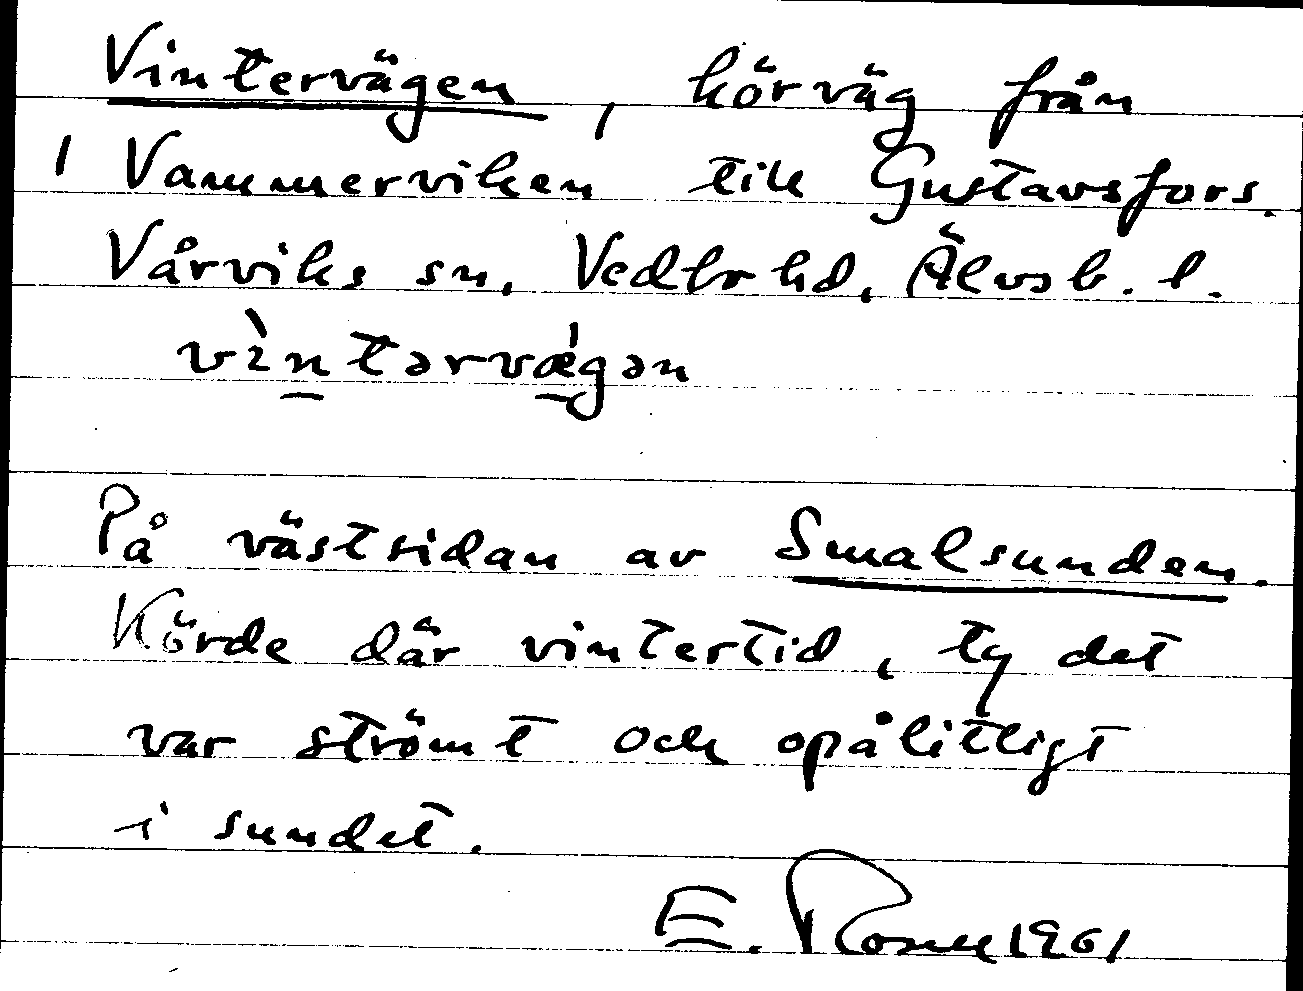 Vintervägen, körväg från
1 Vammerviken till Gustavsfors.
Vårviks sn, Vedbo hd, Älvsb. l.
vìntərvǽgən
På västsidan av Smalsunden.
Körde där vintertid, ty det
var strömt och opålitligt
i sundet.
E. Rosell 1961